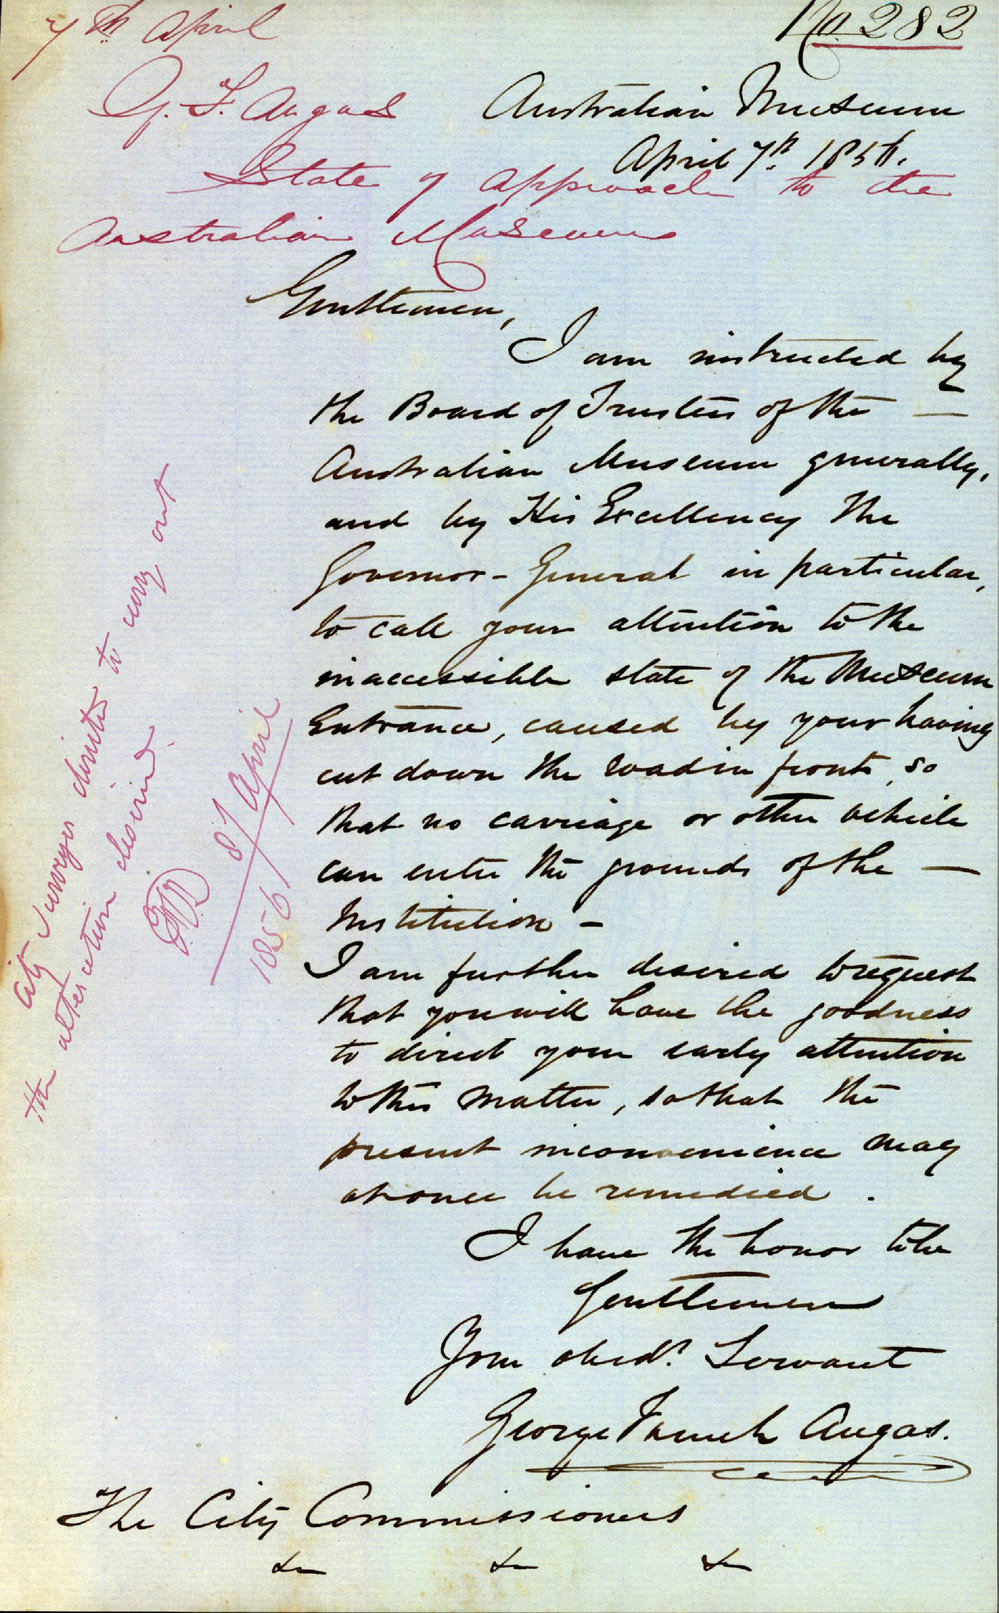 7th April
No. 282
G. F. Angas
Australian Museum
April 7th 1856.
State of approach to the
Australian Museum
Gentlemen,
I am instructed by
the Board of Trustees of the —
Australian Museum generally,
and by His Excellency the
Governor-General in particular,
to call your attention to the
inaccessible state of the Museum
Entrance, caused by your having
cut down the road in front, so
that no carriage or other vehicle
can enter the grounds of the —
Institution —
I am further desired to request
that you will have the goodness
to direct your early attention
to this matter, so that the
present inconvenience may
at once be remedied.
I have the honor to be
Gentlemen
Your obedt. Servant
George French Angas.
The City Commissioners
&c &c &c
City Surveyor directed to carry out
the alteration desired.
8/ April
1856